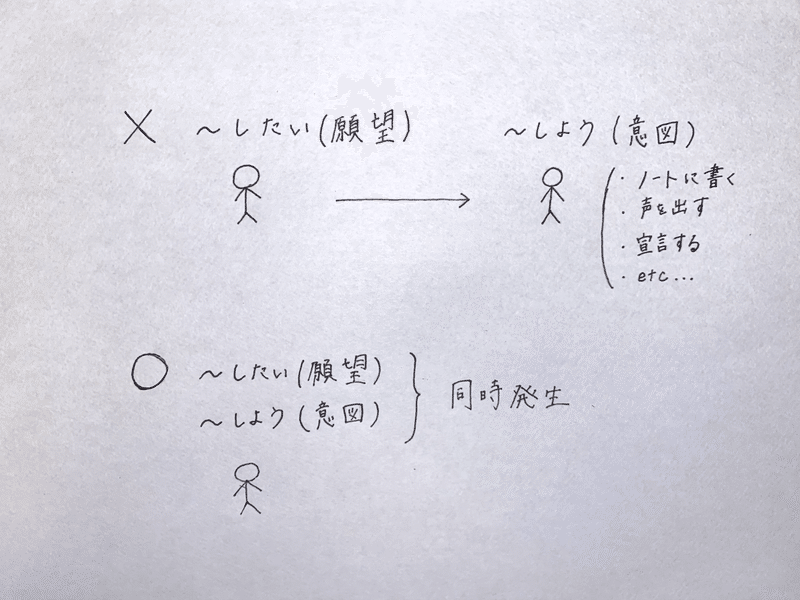 × ～したい(願望) ～しよう(意図)
・ノートに書く
・声を出す
・宣言する
・etc...
○ ～したい(願望)
～しよう(意図)
同時発生